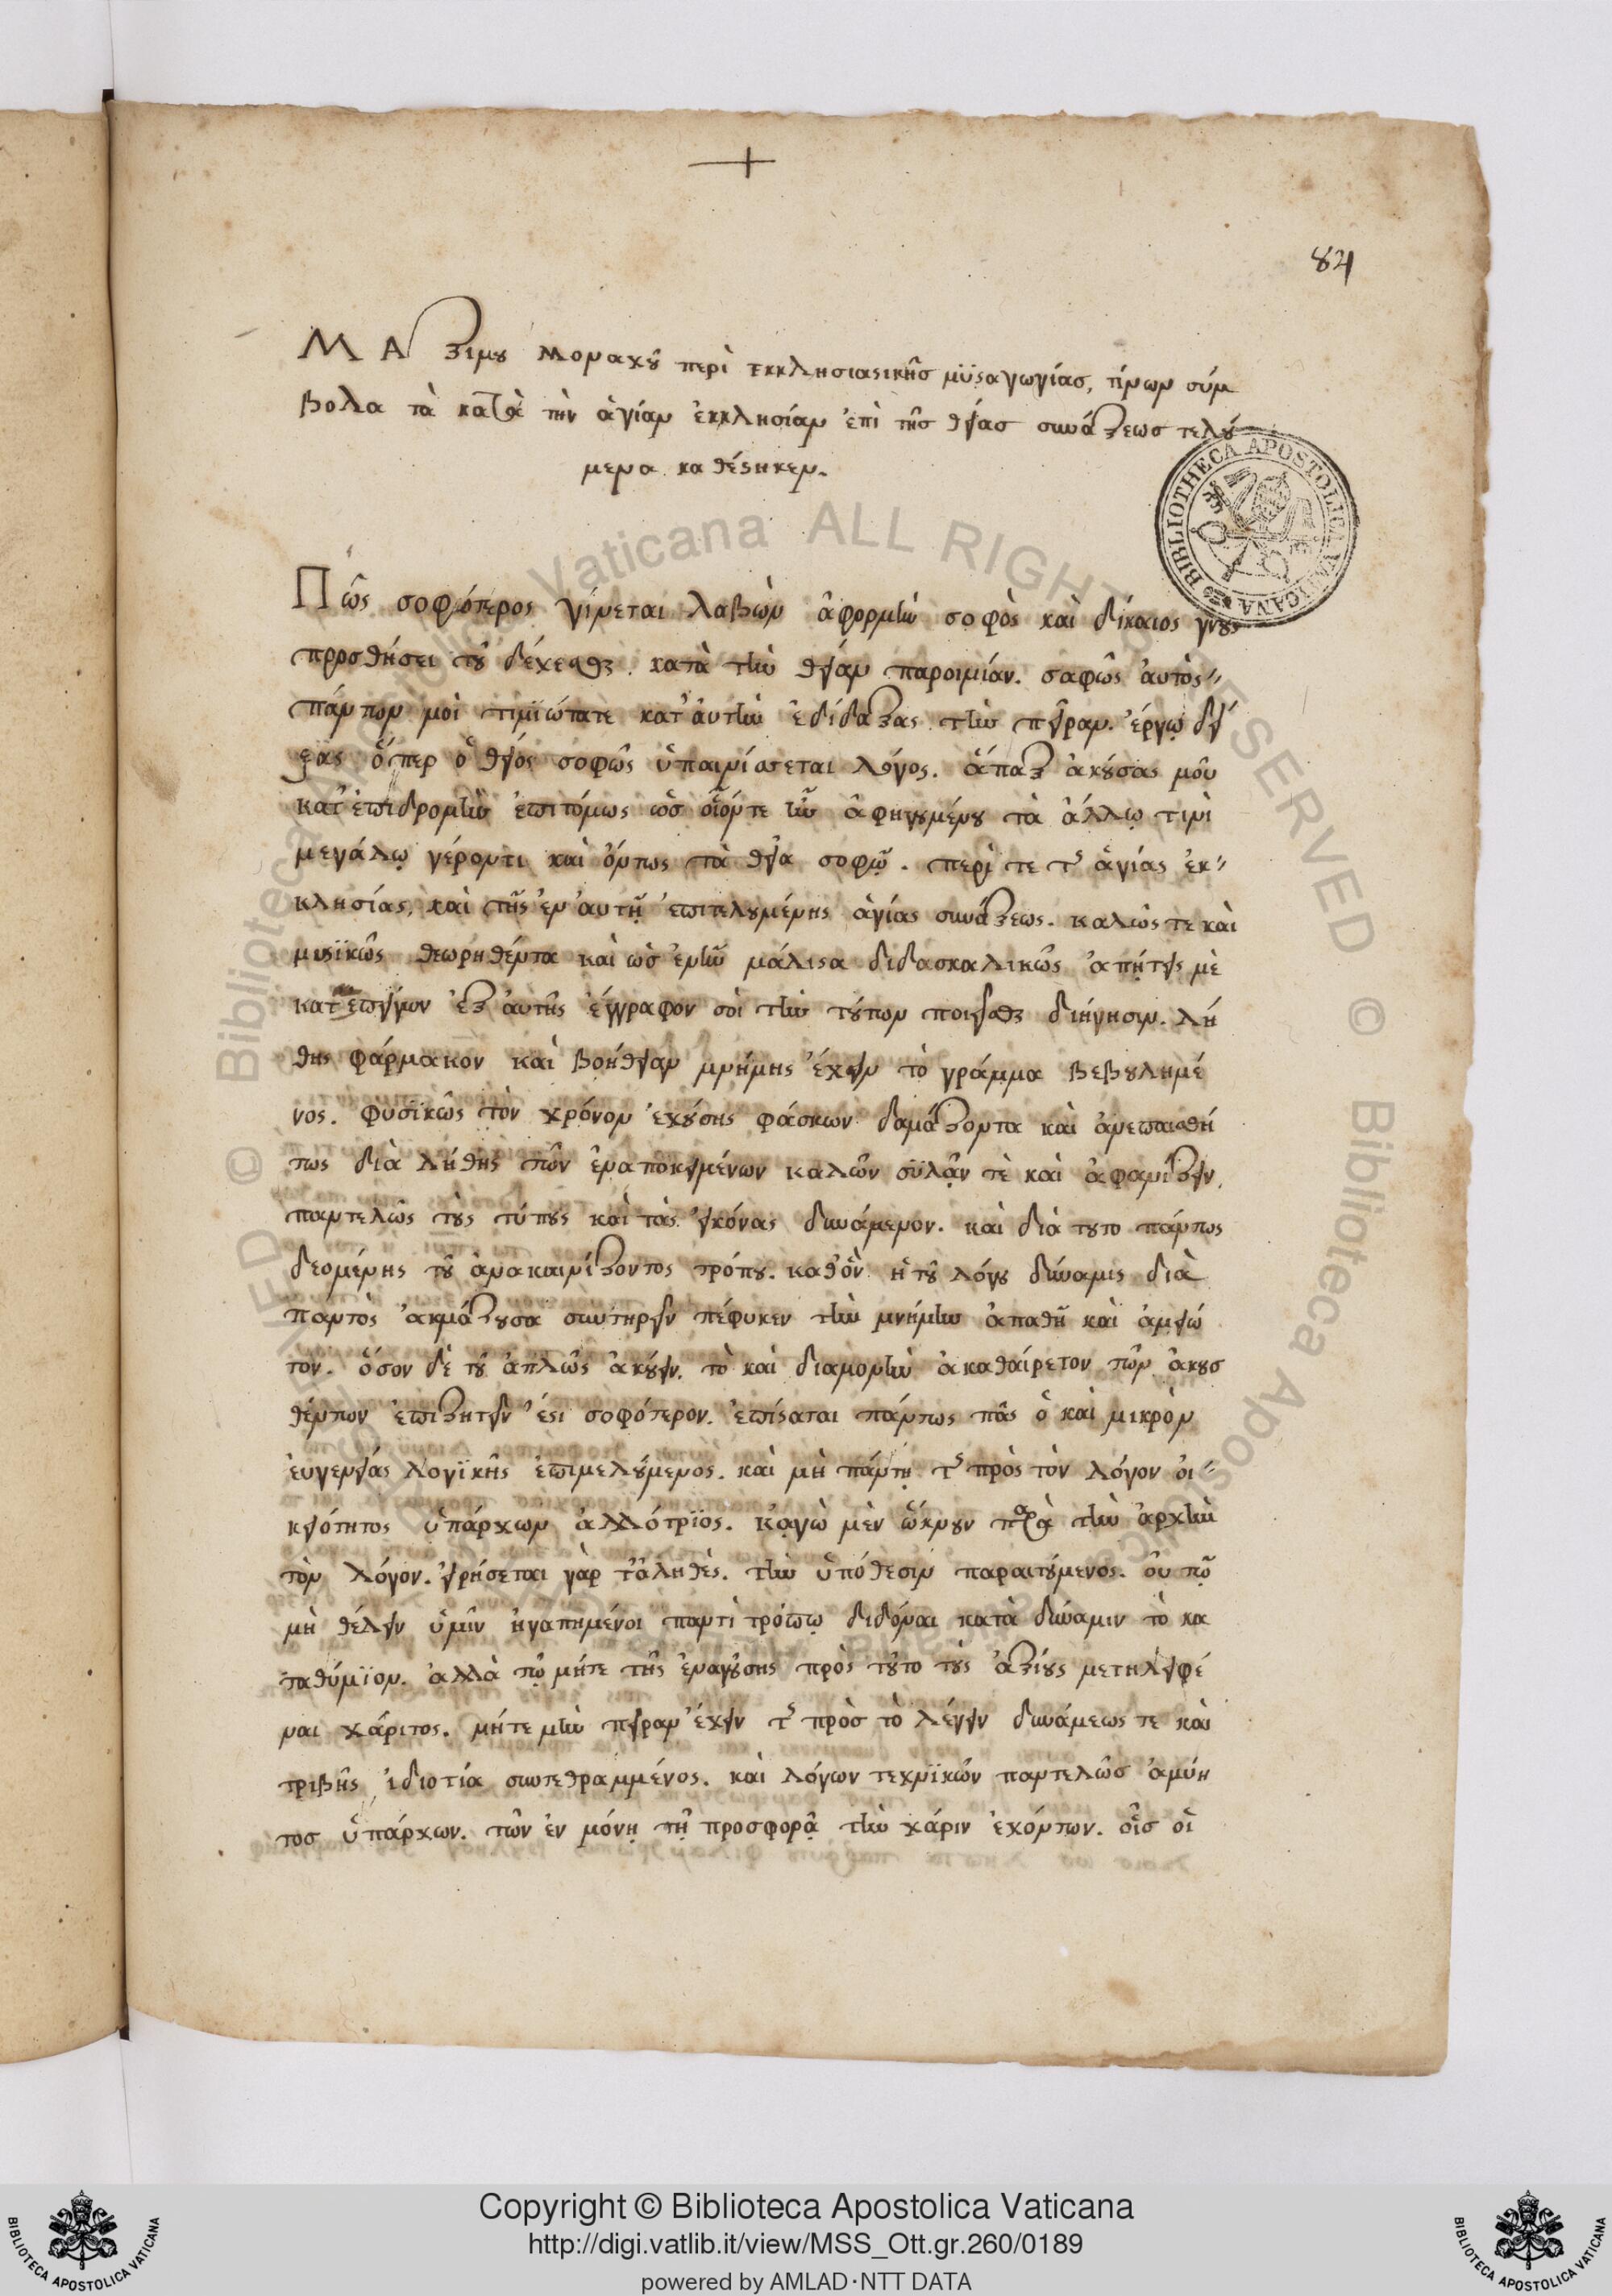 84
Μαξίμου Μοναχοῦ περὶ Ἐκκλησιαστικῆς μϋσταγωγίας, τίνων σύμ
βολα τὰ κατὰ τὴν ἁγίαν ἐκκλησίαν ἐπὶ τῆς θείας συνάξεως τελού
μενα καθέστηκεν.
Πῶς σοφώτερος γίνεται λαβὼν ἀφορμὴν σοφὸς καὶ δίκαιος γνοὺς
προσθήσει τοῦ δέχεσθαι κατὰ τὴν θείαν παροιμίαν. σαφῶς αὐτὸς
πάντων μοὶ τιμϊώτατε κατ' αὐτὴν ἐδίδαξας τὴν πεῖραν. ἔργῳ δεί
ξας ὅπερ ὁ θεῖός σοφῶς ὑπαινίσσεται λόγος. ἅπαξ ἀκούσας μοῦ
κατ' ἐπιδρομὴν ἐπιτόμως ὡς οἷόντε ἦν ἀφηγουμένου τὰ ἄλλῳ τινὶ
μεγάλῳ γέροντι καὶ ὄντως τὰ θεῖα σοφῷ. περί τε τῆς ἁγίας ἐκ
κλησίας, καὶ τῆς ἐν αὐτῇ ἐπιτελουμένης ἁγίας συνάξεως. καλῶς τε καὶ
μυστϊκῶς θεωρηθέντα καὶ ὡς ἐνῆν μάλιστα διδασκαλικῶς ἀπῄτεις μὲ
κατεπείγων ἐξ αὐτῆς ἔγγραφον σοὶ τὴν τούτων ποιεῖσθαι διήγησιν. λή
θης φάρμακον καὶ βοήθειαν μνήμης ἔχειν τὸ γράμμα βεβουλημέ
νος. φυσϊκῶς τὸν χρόνον ἐχούσης φάσκων δαμάζοντα καὶ ἀνεπαισθή
τως διὰ λήθης τῶν ἐναποκειμένων καλῶν συλᾷν τὲ καὶ ἀφανίζειν
παντελῶς τοὺς τύπους καὶ τὰς εἰκόνας δυνάμενον. καὶ διὰ τουτο πάντως
δεομένης τοῦ ἀνακαινίζοντος τρόπου. καθ' ὃν ἡ τοῦ λόγου δύναμις διὰ
παντὸς ἀκμάζουσα συντηρεῖν πέφυκεν τὴν μνήμην ἀπαθῆ καὶ ἀμείω
τον. ὅσον δὲ τοῦ ἁπλῶς ἀκούειν. τὸ καὶ διαμονὴν ἀκαθαίρετον τῶν ἀκουσ
θέντων ἐπιζητεῖν ἐστι σοφώτερον. ἐπίσταται πάντως πᾶς ὁ καὶ μικρὸν
εὐγενείας λογϊκῆς ἐπιμελούμενος. καὶ μὴ πάντῃ τῆς πρὸς τὸν λόγον οἰ
κειότητος ὑπάρχων ἀλλότρϊος. κᾀγὼ μὲν ὤκνουν παρὰ τὴν ἀρχὴν
τὸν λόγον. εἰρήσεται γὰρ τἀληθὲς. τὴν ὑπόθεσιν παραιτούμενος. οὐ τῷ
μὴ θέλειν ὑμῖν ἠγαπημένοι παντὶ τρόπῳ διδόναι κατὰ δύναμιν τὸ κα
ταθύμϊον. ἀλλὰ τῷ μήτε τῆς ἐναγούσης πρὸς τοῦτο τοὺς ἀξίους μετηλειφέ
ναι χάριτος. μήτε μὴν πεῖραν ἔχειν τῆς πρὸς τὸ λέγειν δυνάμεως τε καὶ
τριβῆς ἰδιοτία συντεθραμμένος. καὶ λόγων τεχνϊκῶν παντελῶς ἀμύη
τος ὑπάρχων. τῶν ἐν μόνῃ τῇ προσφορᾷ τὴν χάριν ἐχόντων. οἷς οἱ
BIBLIOTHECA APOSTOLICA VATICANA
© Biblioteca Apostolica Vaticana ALL RIGHTS RESERVED
Copyright © Biblioteca Apostolica Vaticana
http://digi.vatlib.it/view/MSS_Ott.gr.260/0189
powered by AMLAD·NTT DATA
BIBLIOTECA APOSTOLICA VATICANA
BIBLIOTECA APOSTOLICA VATICANA